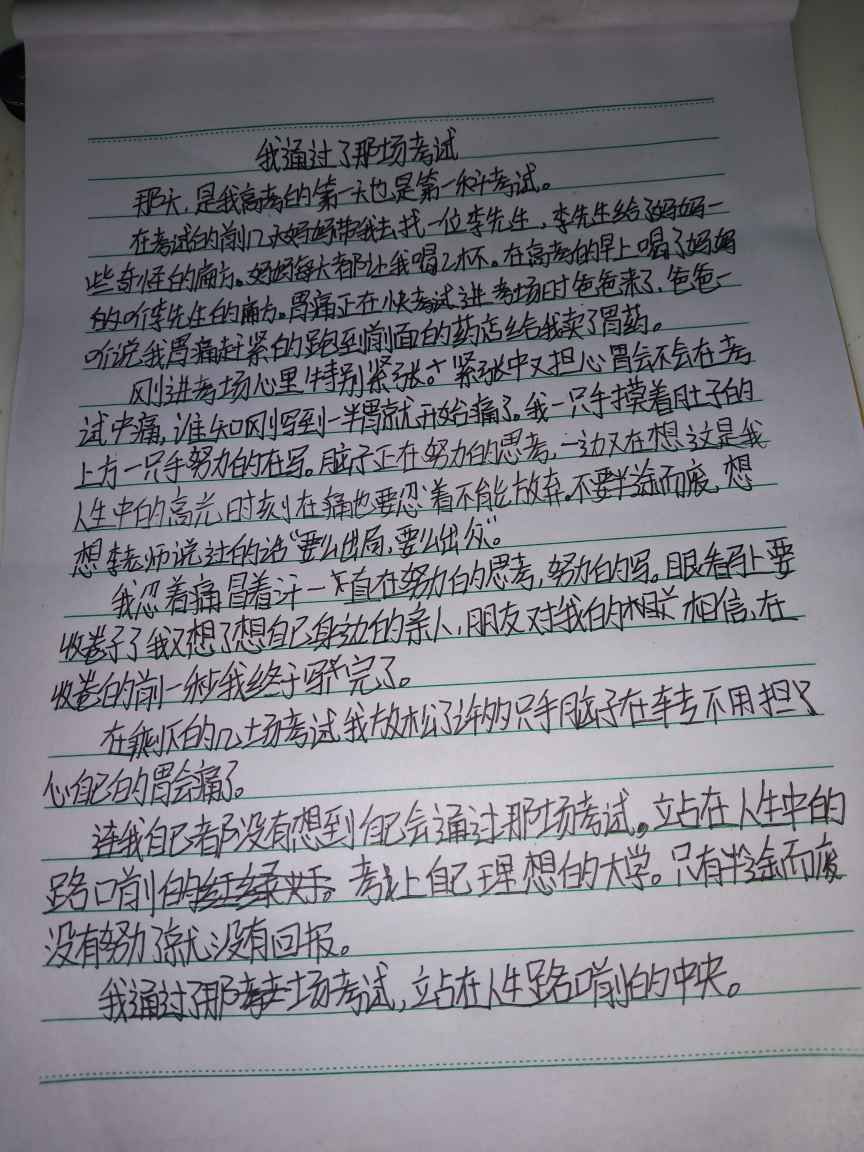 我通过了那场考试
那天,是我高考的第一天也是第一科考试。
在考试的前几天妈妈带我去找一位李先生,李先生给了妈妈一
些奇怪的偏方。妈妈每天都让我喝2杯。在高考的早上喝了妈妈
的听李先生的偏方。胃痛正在快考试进考场时爸爸来了,爸爸一
听说我胃痛赶紧的跑到前面的药店给我卖了胃药。
刚进考场心里特别紧张。紧张中又担心胃会不会在考
试中痛,谁知刚写到一半胃就开始痛了。我一只手摸着肚子的
上方一只手努力的在写。脑子正在努力的思考,一边又在想这是我
人生中的高光时刻在痛也要忍着不能放弃。不要半途而废,想
想李老师说过的话“要么出局,要么出众”。
我忍着痛冒着汗一直在努力的思考,努力的写。眼看马上要
收卷子了我又想了想自己身边的亲人,朋友对我的相信,在
收卷的前一秒我终于写完了。
在剩下的几场考试我放松了许多只手脑子在转不用担
心自己的胃会痛了。
连我自己都没有想到自己会通过那场考试。立占在人生中的
路口前的 考上自己理想的大学。只有半途而废
没有努力了就没有回报。
我通过了那场考试,立占在人生路口前的中央。